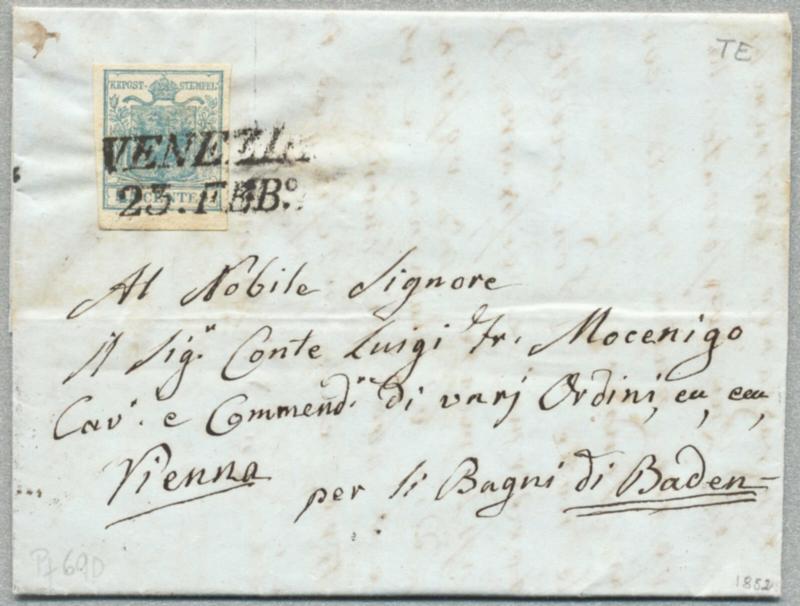 TE
KKPOST-STEMPEL
VENEZIA
23. FEBB.º
CENTES
Al Nobile Signore
Il Sig.r Conte Luigi Fr. Mocenigo
Cav.r e Commend.re di varj Ordini, eu, eeu,
Vienna
per li Bagni di Baden
1852